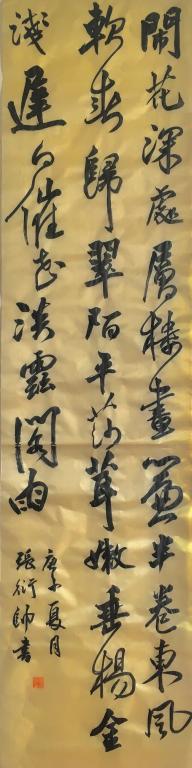 鬧花深處層樓畫簾半卷東風
軟春歸翠陌平莎茸嫩垂楊金
淺遲日催花淡雲閣雨
庚子夏月
張衍帥書